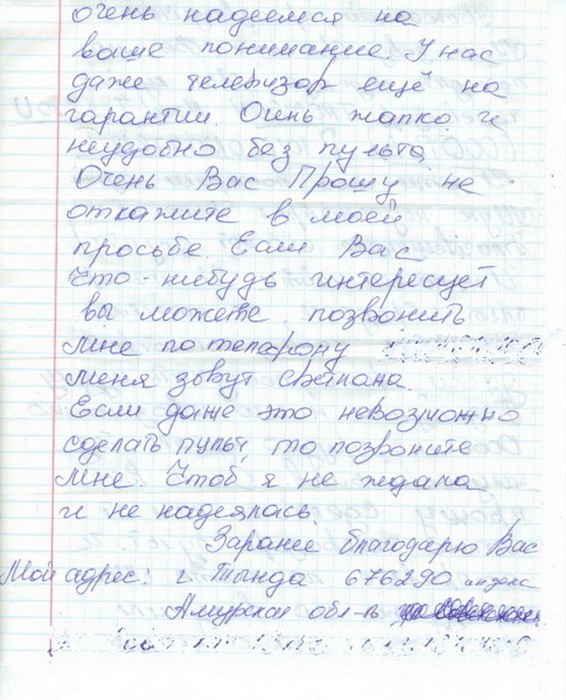 очень надеемся на
ваше понимание. У нас
даже телевизор ещё на
гарантии. Очень жалко и
неудобно без пульта
Очень Вас Прошу не
откажите в моей
просьбе. Если Вас
Что-нибудь интересует
вы можете позвонить
мне по телефону
меня зовут Светлана.
Если даже это невозможно
сделать пульт, то позвоните
мне. Чтоб я не ждала
и не надеялась.
Заранее благодарю Вас
Мой адрес: г. Тында 676290 индекс
Амурская обл-ть